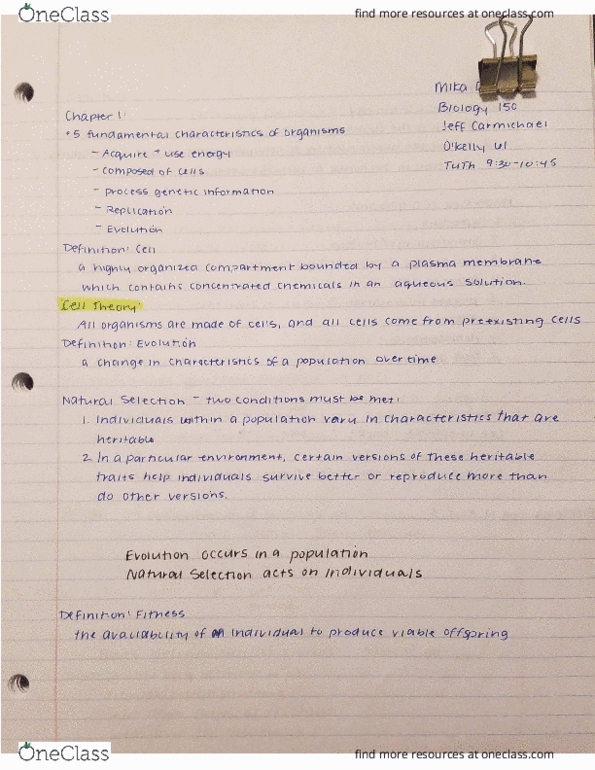 OneClass
find more resources at oneclass.com
Mika
Biology 150
Chapter 1:
Jeff Carmichael
• 5 fundamental characteristics of organisms
O'Kelly 61
- Acquire + use energy
TuTh 9:30-10:45
- composed of cells
- process genetic information
- Replication
- Evolution
Definition: Cell
a highly organized compartment bounded by a plasma membrane
which contains concentrated chemicals in an aqueous solution.
Cell Theory:
All organisms are made of cells, and all cells come from preexisting cells
Definition: Evolution
a change in characteristics of a population over time
Natural Selection - two conditions must be met:
1. Individuals within a population vary in characteristics that are
heritable
2. In a particular environment, certain versions of these heritable
traits help individuals survive better or reproduce more than
do other versions.
Evolution occurs in a population
Natural Selection acts on individuals
Definition: Fitness
the availability of an individual to produce viable offspring
OneClass
find more resources at oneclass.com